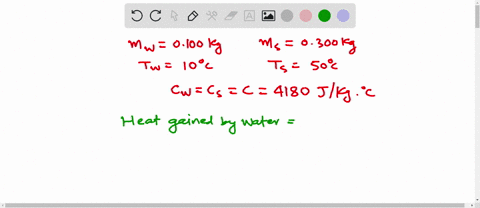 m_w = 0.100 kg    m_s = 0.300 kg
T_w = 10°c    T_s = 50°c
C_w = C_s = C = 4180 J/kg.°c
Heat gained by water =